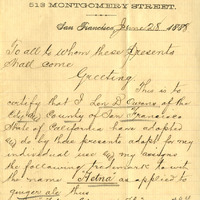 513 MONTGOMERY STREET.
San Francisco, June 28 1888
To all to whom these presents
shall come
Greeting.
This is to
certify that I Leon D
City & County of San Francisco
State of California have adopted
& do by these presents adopt for my
individual use
the following trademark to wit
the name "Aetna" as applied to
ginger ale thus